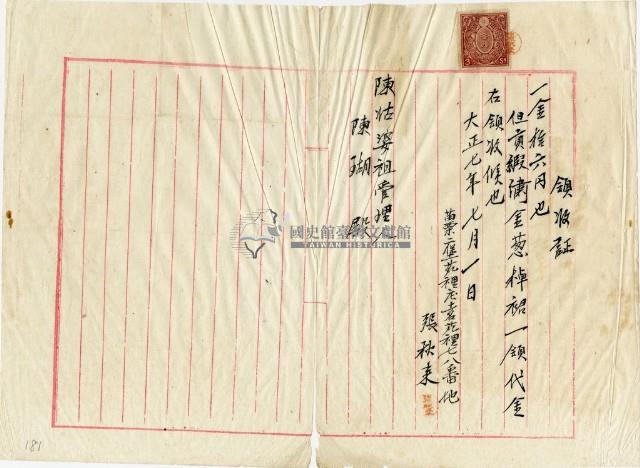 領收証
一金拾六円也
但貢緞滿金蔥棹裙一領代金
右領收候也
大正七年七月一日
苗栗一堡苑裡庄苑裡七八番地
張秋来
陳姑婆祖管理
陳瑚殿
國史館臺灣文獻館
TAIWAN HISTORICA
181